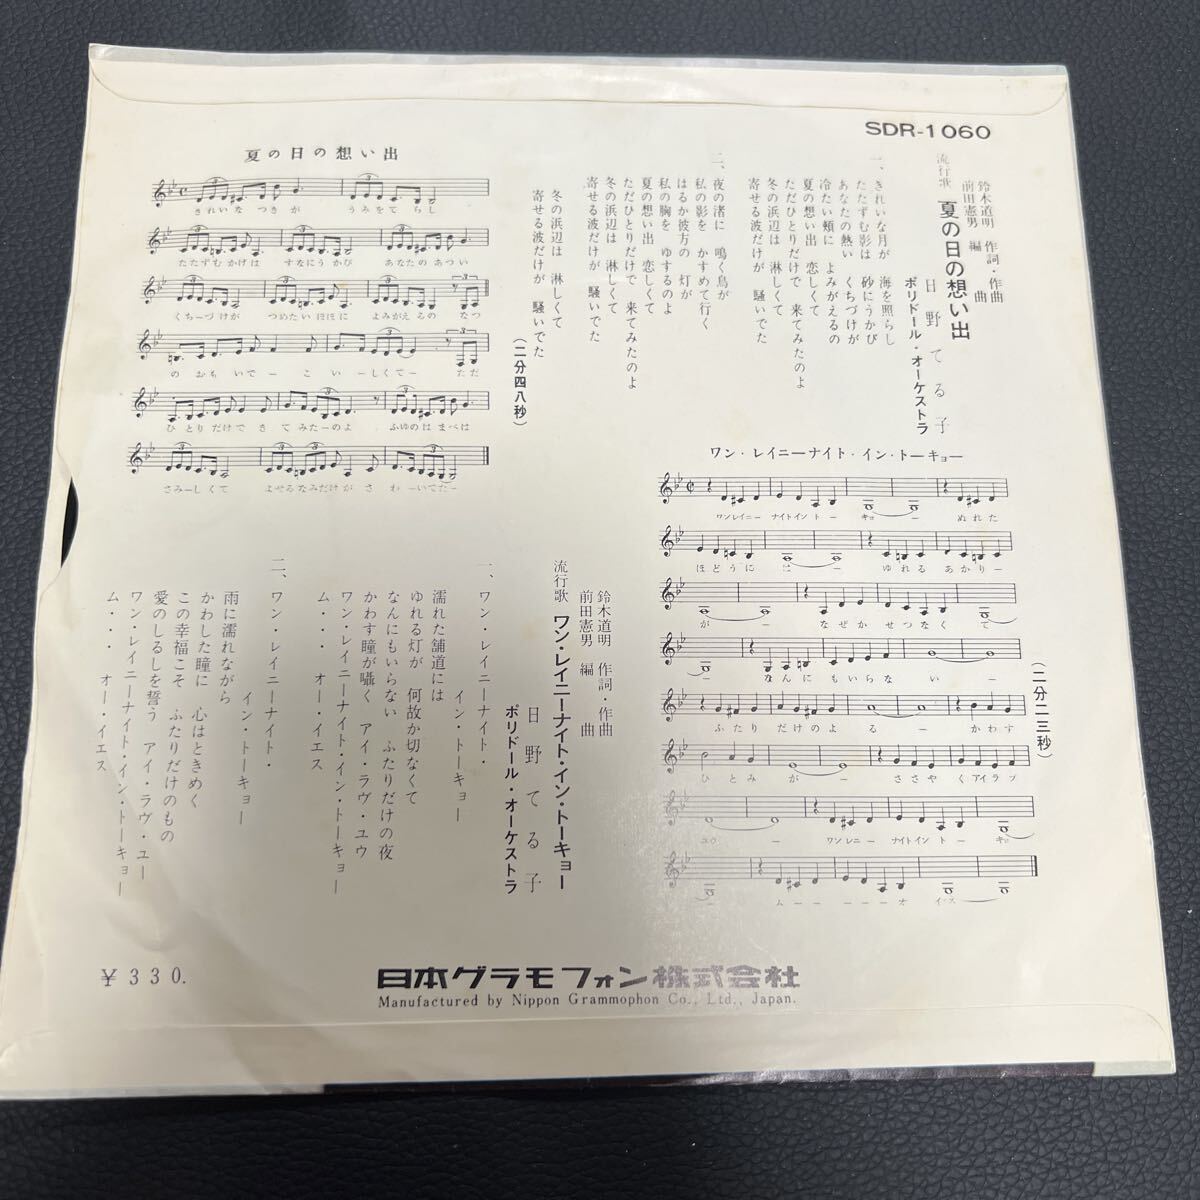 SDR-1060
流行歌 夏の日の想い出
鈴木道明 作詞・作曲
前田憲男 編曲
日野てる子
ポリドール・オーケストラ
一、きれいな月が 海を照らし
たたずむ影は 砂にうかび
あなたの熱い くちづけが
冷たい頬に よみがえるの
夏の想い出 恋しくて
ただひとりだけで 来てみたのよ
冬の浜辺は 淋しくて
寄せる波だけが 騒いでた
二、夜の渚に 鳴く鳥が
私の影を かすめて行く
はるか彼方の 灯が
私の胸を ゆするのよ
夏の想い出 恋しくて
ただひとりだけで 来てみたのよ
冬の浜辺は 淋しくて
寄せる波だけが 騒いでた
冬の浜辺は 淋しくて
寄せる波だけが 騒いでた
(二分四八秒)
夏の日の想い出
きれいな つきが うみをて らし
たたずむ かげは すなにうかび あなたのあつい
くちーづけが つめたいほほに よみがえるの なつ
のおもいでー こいーしくてー ただ
ひとりだけで きてみたーのよ ふゆのはまべは
さみーしくて よせるなみだけが さわーいでたー
ワン・レイニーナイト・イン・トーキョー
ワンレイニー ナイトイントー キョー ぬれた
ほどうに はー ゆれる あかりー
がー なぜか せつなく て
ー なんにもいらないー
ふたり だけのよるー かわす
ひとみがー ささやく アイラブ
ユウー ワンレイニー ナイトイント ー キョ
ー ムーーーーオ イエス
(二分二三秒)
流行歌 ワン・レイニーナイト・イン・トーキョー
鈴木道明 作詞・作曲
前田憲男 編曲
日野てる子
ポリドール・オーケストラ
一、ワン・レイニーナイト・
イン・トーキョー
濡れた舗道には
ゆれる灯が 何故か切なくて
なんにもいらない ふたりだけの夜
かわす瞳が囁く アイ・ラヴ・ユウ
ワン・レイニーナイト・イン・トーキョー
ム・・・ オー・イエス
二、ワン・レイニーナイト・
イン・トーキョー
雨に濡れながら
かわした瞳に 心はときめく
この幸福こそ ふたりだけのもの
愛のしるしを誓う アイ・ラヴ・ユー
ワン・レイニーナイト・イン・トーキョー
ム・・・ オー・イエス
¥330.
日本グラモフォン株式会社
Manufactured by Nippon Grammophon Co., Ltd., Japan.